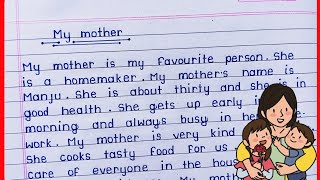 My mother
My mother is my favourite person. She
is a homemaker. My mother's name is
Manju. She is about thirty and she is in
good health. She gets up early in
morning and always busy in he
work. My mother is very kind
She cooks tasty food for us.
care of everyone in the hous